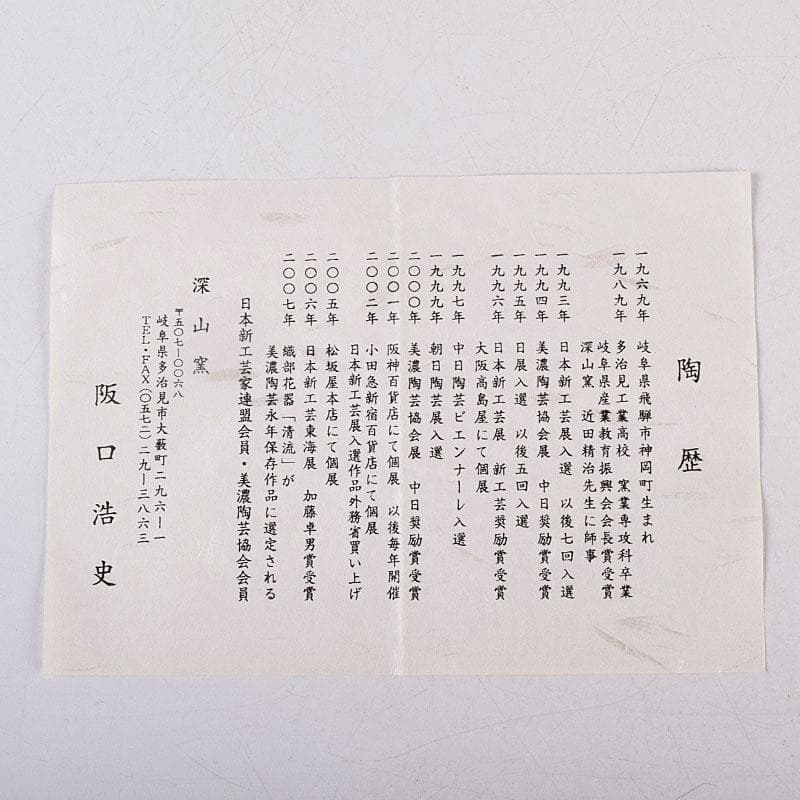 陶歴
一九六九年 岐阜県飛騨市神岡町生まれ
一九八九年 多治見工業高校 窯業専攻科卒業
岐阜県産業教育振興会会長賞受賞
深山窯 近田精治先生に師事
一九九三年 日本新工芸展入選 以後七回入選
一九九四年 美濃陶芸協会展 中日奨励賞受賞
一九九五年 日展入選 以後五回入選
一九九六年 日本新工芸展 新工芸奨励賞受賞
大阪高島屋にて個展
一九九七年 中日陶芸ビエンナーレ入選
一九九九年 朝日陶芸展入選
二〇〇〇年 美濃陶芸協会展 中日奨励賞受賞
二〇〇一年 阪神百貨店にて個展 以後毎年開催
二〇〇二年 小田急新宿百貨店にて個展
日本新工芸展入選作品外務省買い上げ
二〇〇五年 松坂屋本店にて個展
二〇〇六年 日本新工芸東海展 加藤卓男賞受賞
二〇〇七年 織部花器「清流」が
美濃陶芸永年保存作品に選定される
日本新工芸家連盟会員・美濃陶芸協会会員
深山窯
〒五〇七ー〇〇六八
岐阜県多治見市大藪町二九六ー一
TEL・FAX(〇五七二)二九ー三八六三
阪口浩史